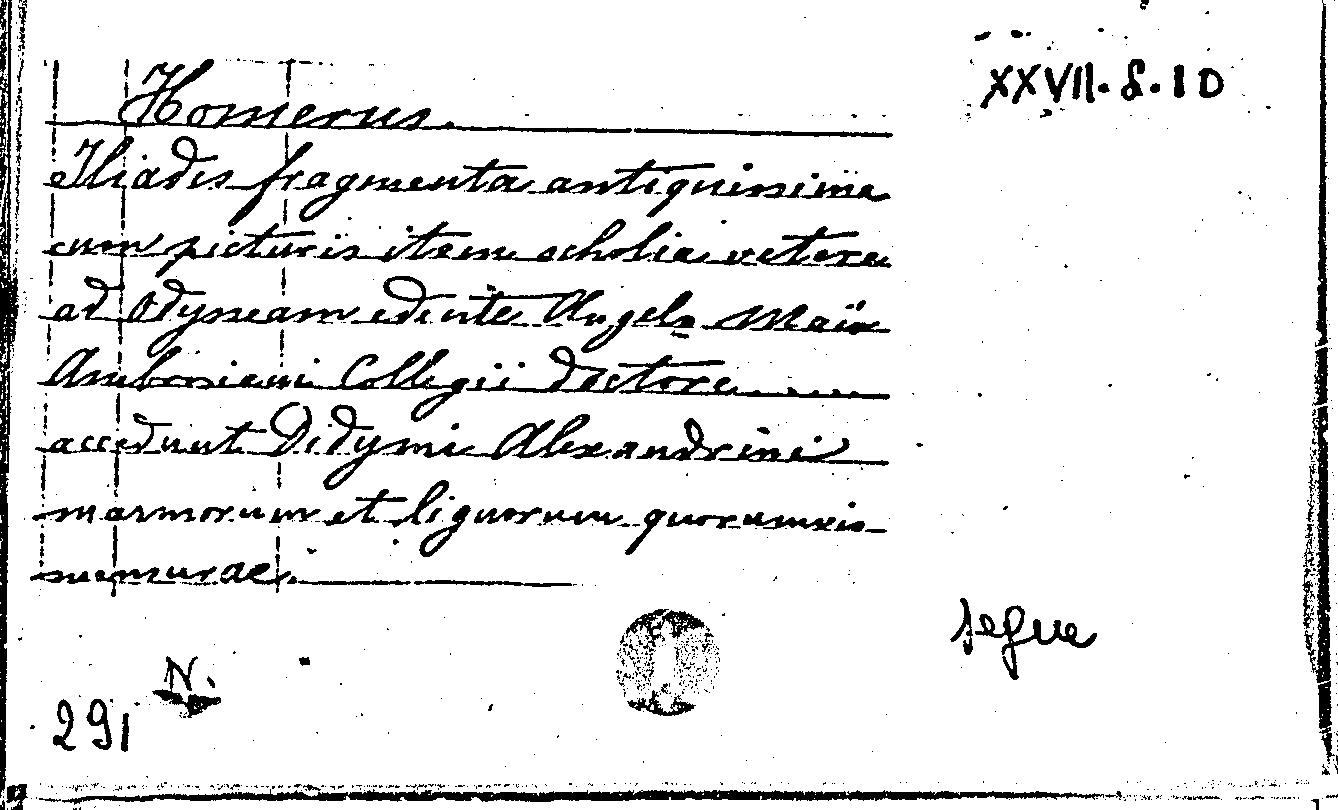 XXVII. S. 1 D
Homerus.
Iliadis fragmenta antiquissima
cum picturis item scholia vetera
ad Odysseam edente Angelo Maïo
Ambrosiani Collegii doctore ......
accedunt Didymi Alexandrini
marmorum et lignorum quorumvis
mensurae.
segue
N.
291